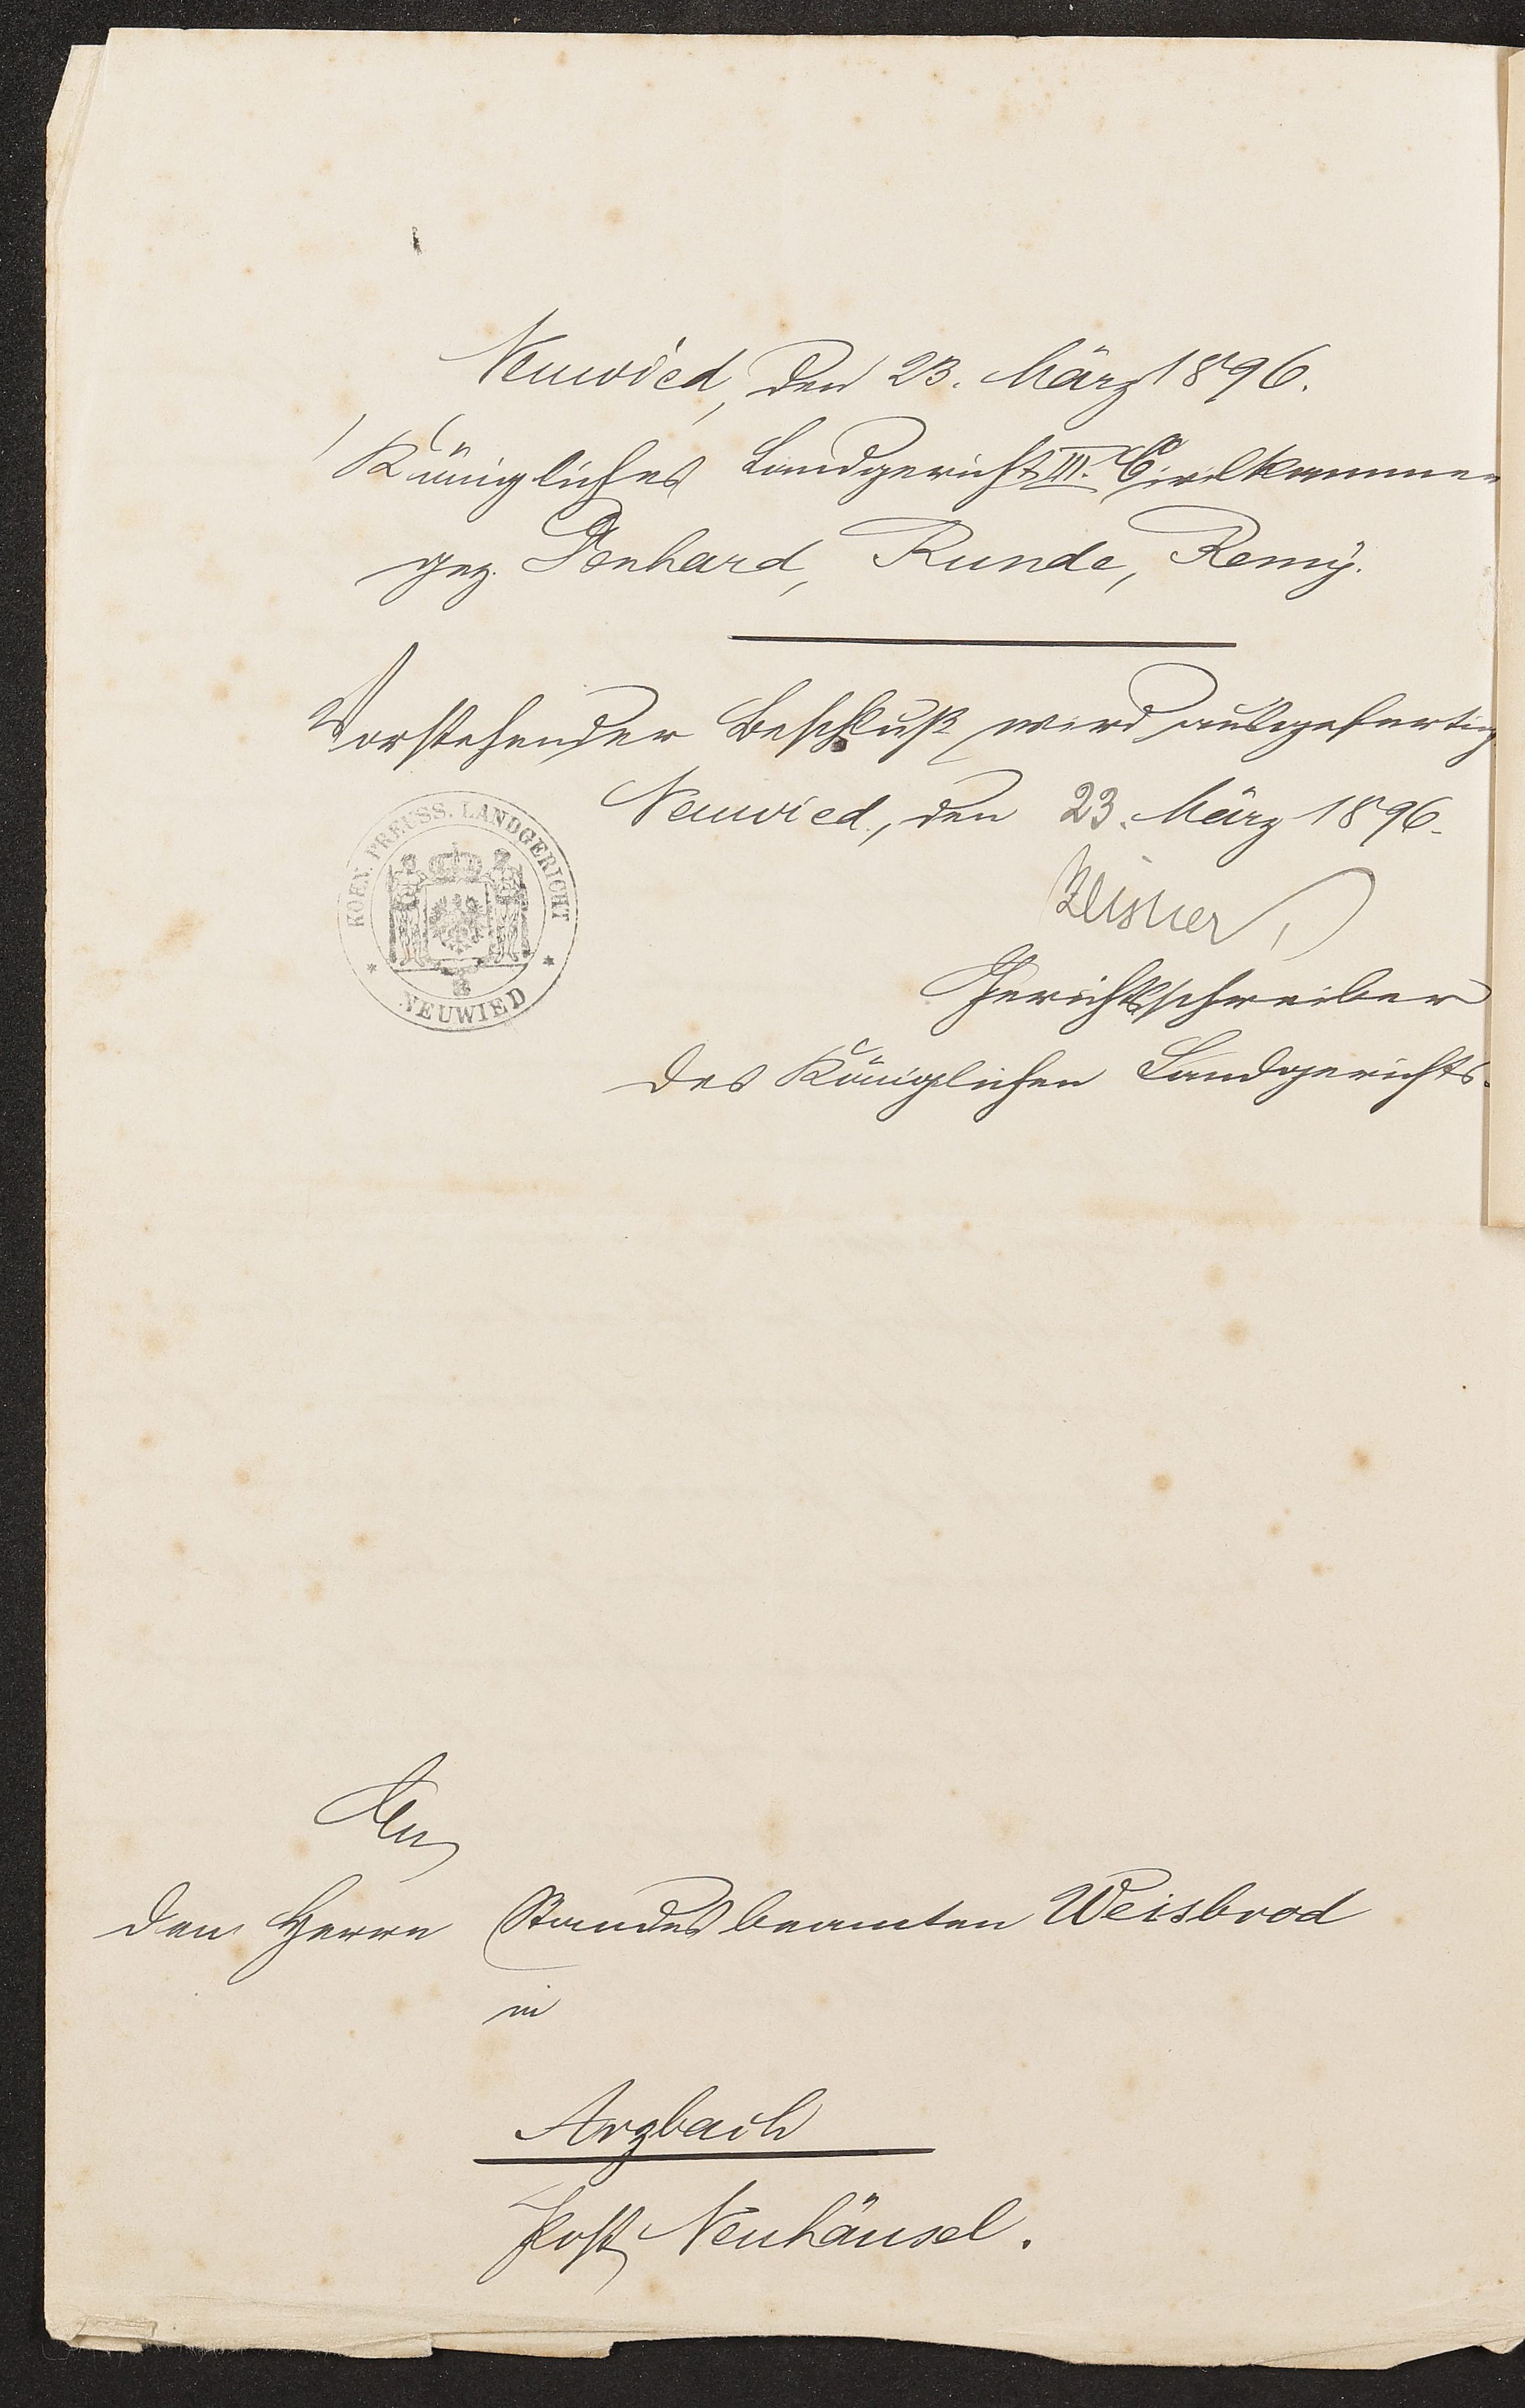 Neuwied, den 23. März 1896.
Königliches Landgericht III. Civilkammer
gez. Donhard, Runde, Remy.
Vorstehender Beschluß wird ausgefertig
Neuwied, den 23. März 1896.
KOEN. PREUSS. LANDGERICHT
* NEUWIED *
Gerichtsschreiber
des Königlichen Landgerichts.
An
den Herrn Standesbeamten Weisbrod
in
Arzbach
Post Neuhäusel.